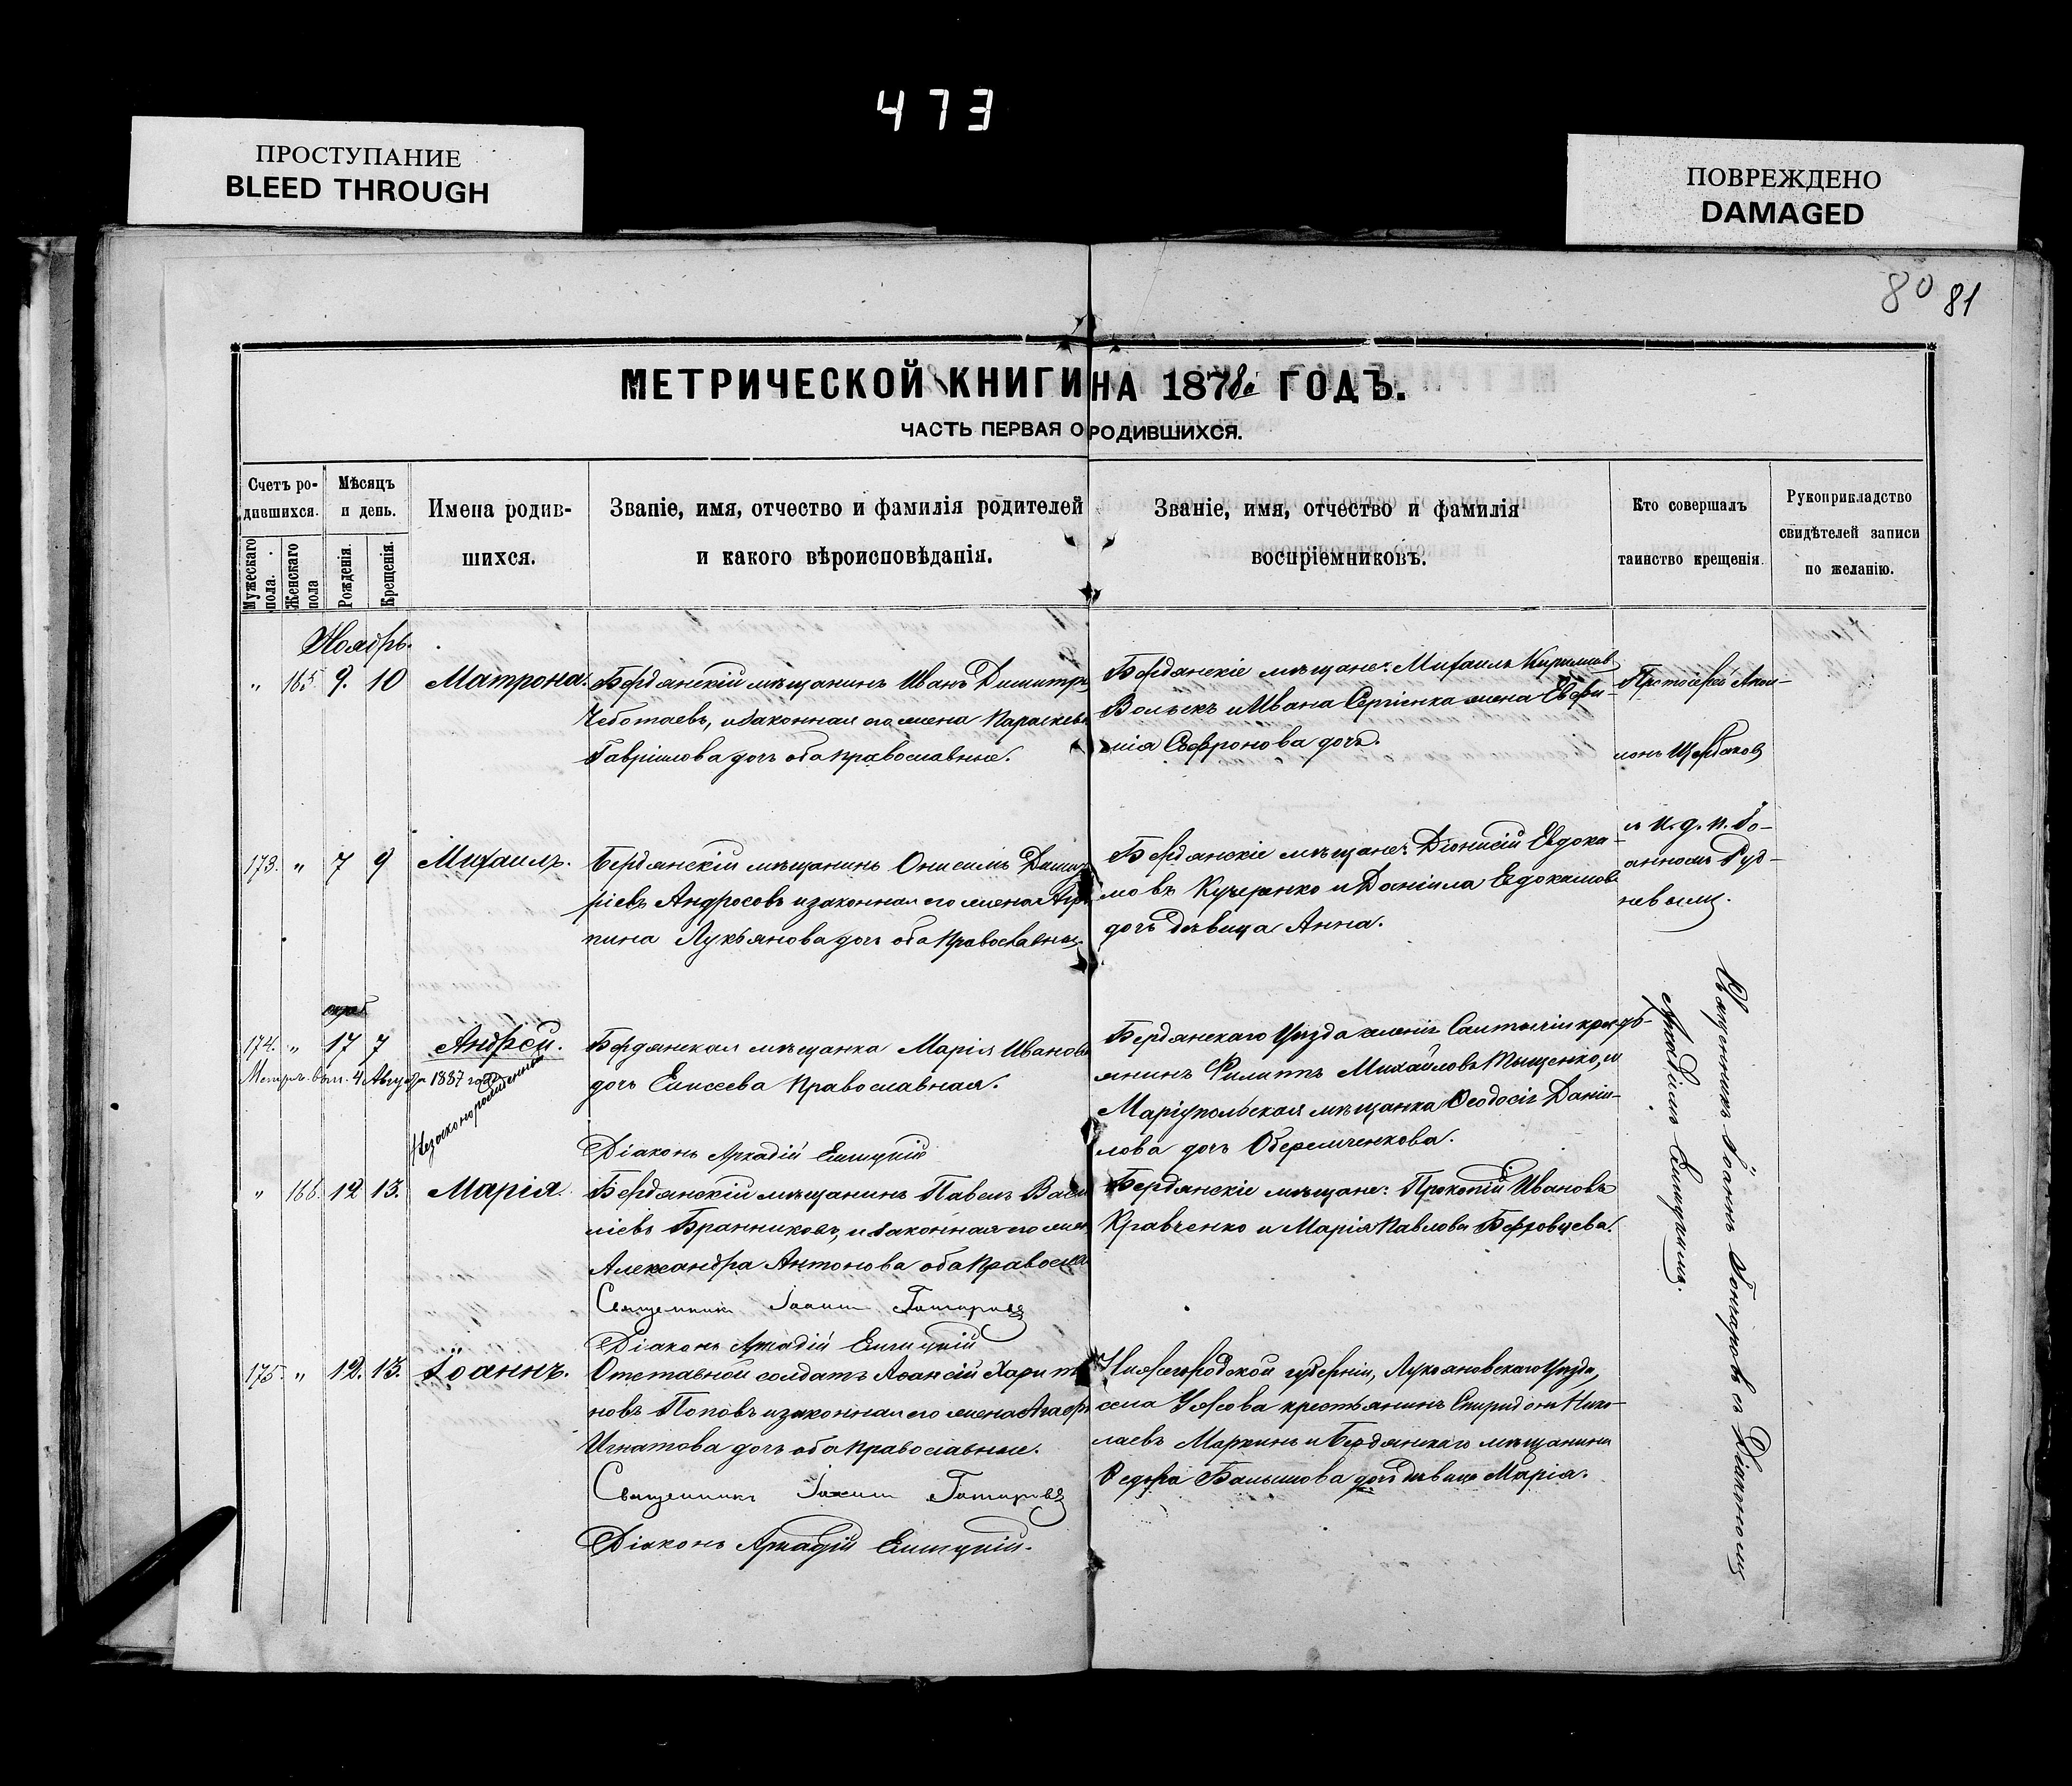 473
ПРОСТУПАНИЕ
BLEED THROUGH
ПОВРЕЖДЕНО
DAMAGED
80 81
МЕТРИЧЕСКОЙ КНИГИ НА 1878й ГОДЪ.
ЧАСТЬ ПЕРВАЯ О РОДИВШИХСЯ.
Счетъ ро-
дившихся.
Мужескаго пола.
Женскаго пола
Мѣсяцъ
и день.
Рожденія.
Крещенія.
Имена родив-
шихся.
Званіе, имя, отчество и фамилія родителей
и какого вѣроисповѣданія.
Званіе, имя, отчество и фамилія
воспріемниковъ.
Кто совершалъ
таинство крещенія.
Рукоприкладство
свидѣтелей записи
по желанію.
Ноябрь.
" 165. 9. 10 Матрона.
Бердянскій мѣщанинъ Иванъ Димитрі
Чеботаевъ, и законная его жена Параскева
Гавріилова дочь оба православные.
Бердянскіе мѣщане: Михаилъ Кириловъ
и Ивана Сергіенка жена Евфи-
мія Софронова дочь.
Протоіерей Апол-
лонъ Щербаковъ
173. " 7 9 Михаилъ.
Бердянскій мѣщанинъ Онисимъ Димит
ріевъ Андросовъ и законная его жена Агри
пина Лукъянова дочь оба православные.
Бердянскіе мѣщане: Діонисій Евдоки-
мовъ Кучеренко и Даніила Евдокимова
дочь дѣвица Анна.
съ и. д. п. Іо-
анномъ Руд-
невымъ.
174. " 17 7 Андрей.
4 Августа 1887 года
Незаконорожденный
Бердянская мѣщанка Марія Иванова
дочь Елисеева православная.
Діаконъ Аркадій
Бердянскаго Уѣзда
Филиппъ Михайловъ Тыщенко, и
Маріупольская мѣщанка Ѳеодосія Даніи-
лова дочь Оберемченкова.
" 166. 12 13. Марія.
Бердянскій мѣщанинъ Павелъ Васи
ліевъ Бранниковъ, и законная его жена
Александра Антонова оба правосла
Священникъ Іоаннъ Гончаровъ
Діаконъ Аркадій
Бердянскіе мѣщане: Прокопій Ивановъ
Кравченко и Марія Павлова
175. " 12. 13. Іоаннъ.
Отставной солдатъ Аѳанасій Харито
новъ Поповъ и законная его жена Агаѳія
Игнатова дочь оба православные.
Священникъ Іоаннъ Гончаровъ
Діаконъ Аркадій
Нижегородской губерніи, Лукояновскаго Уѣзда,
села Ужова крестьянинъ Спиридонъ Нико-
лаевъ Маркинъ и Бердянскаго мѣщанина
Ѳедора Балышова дочь дѣвица Марія.
Священникъ Іоаннъ Гончаровъ съ Діакономъ
Аркадіемъ